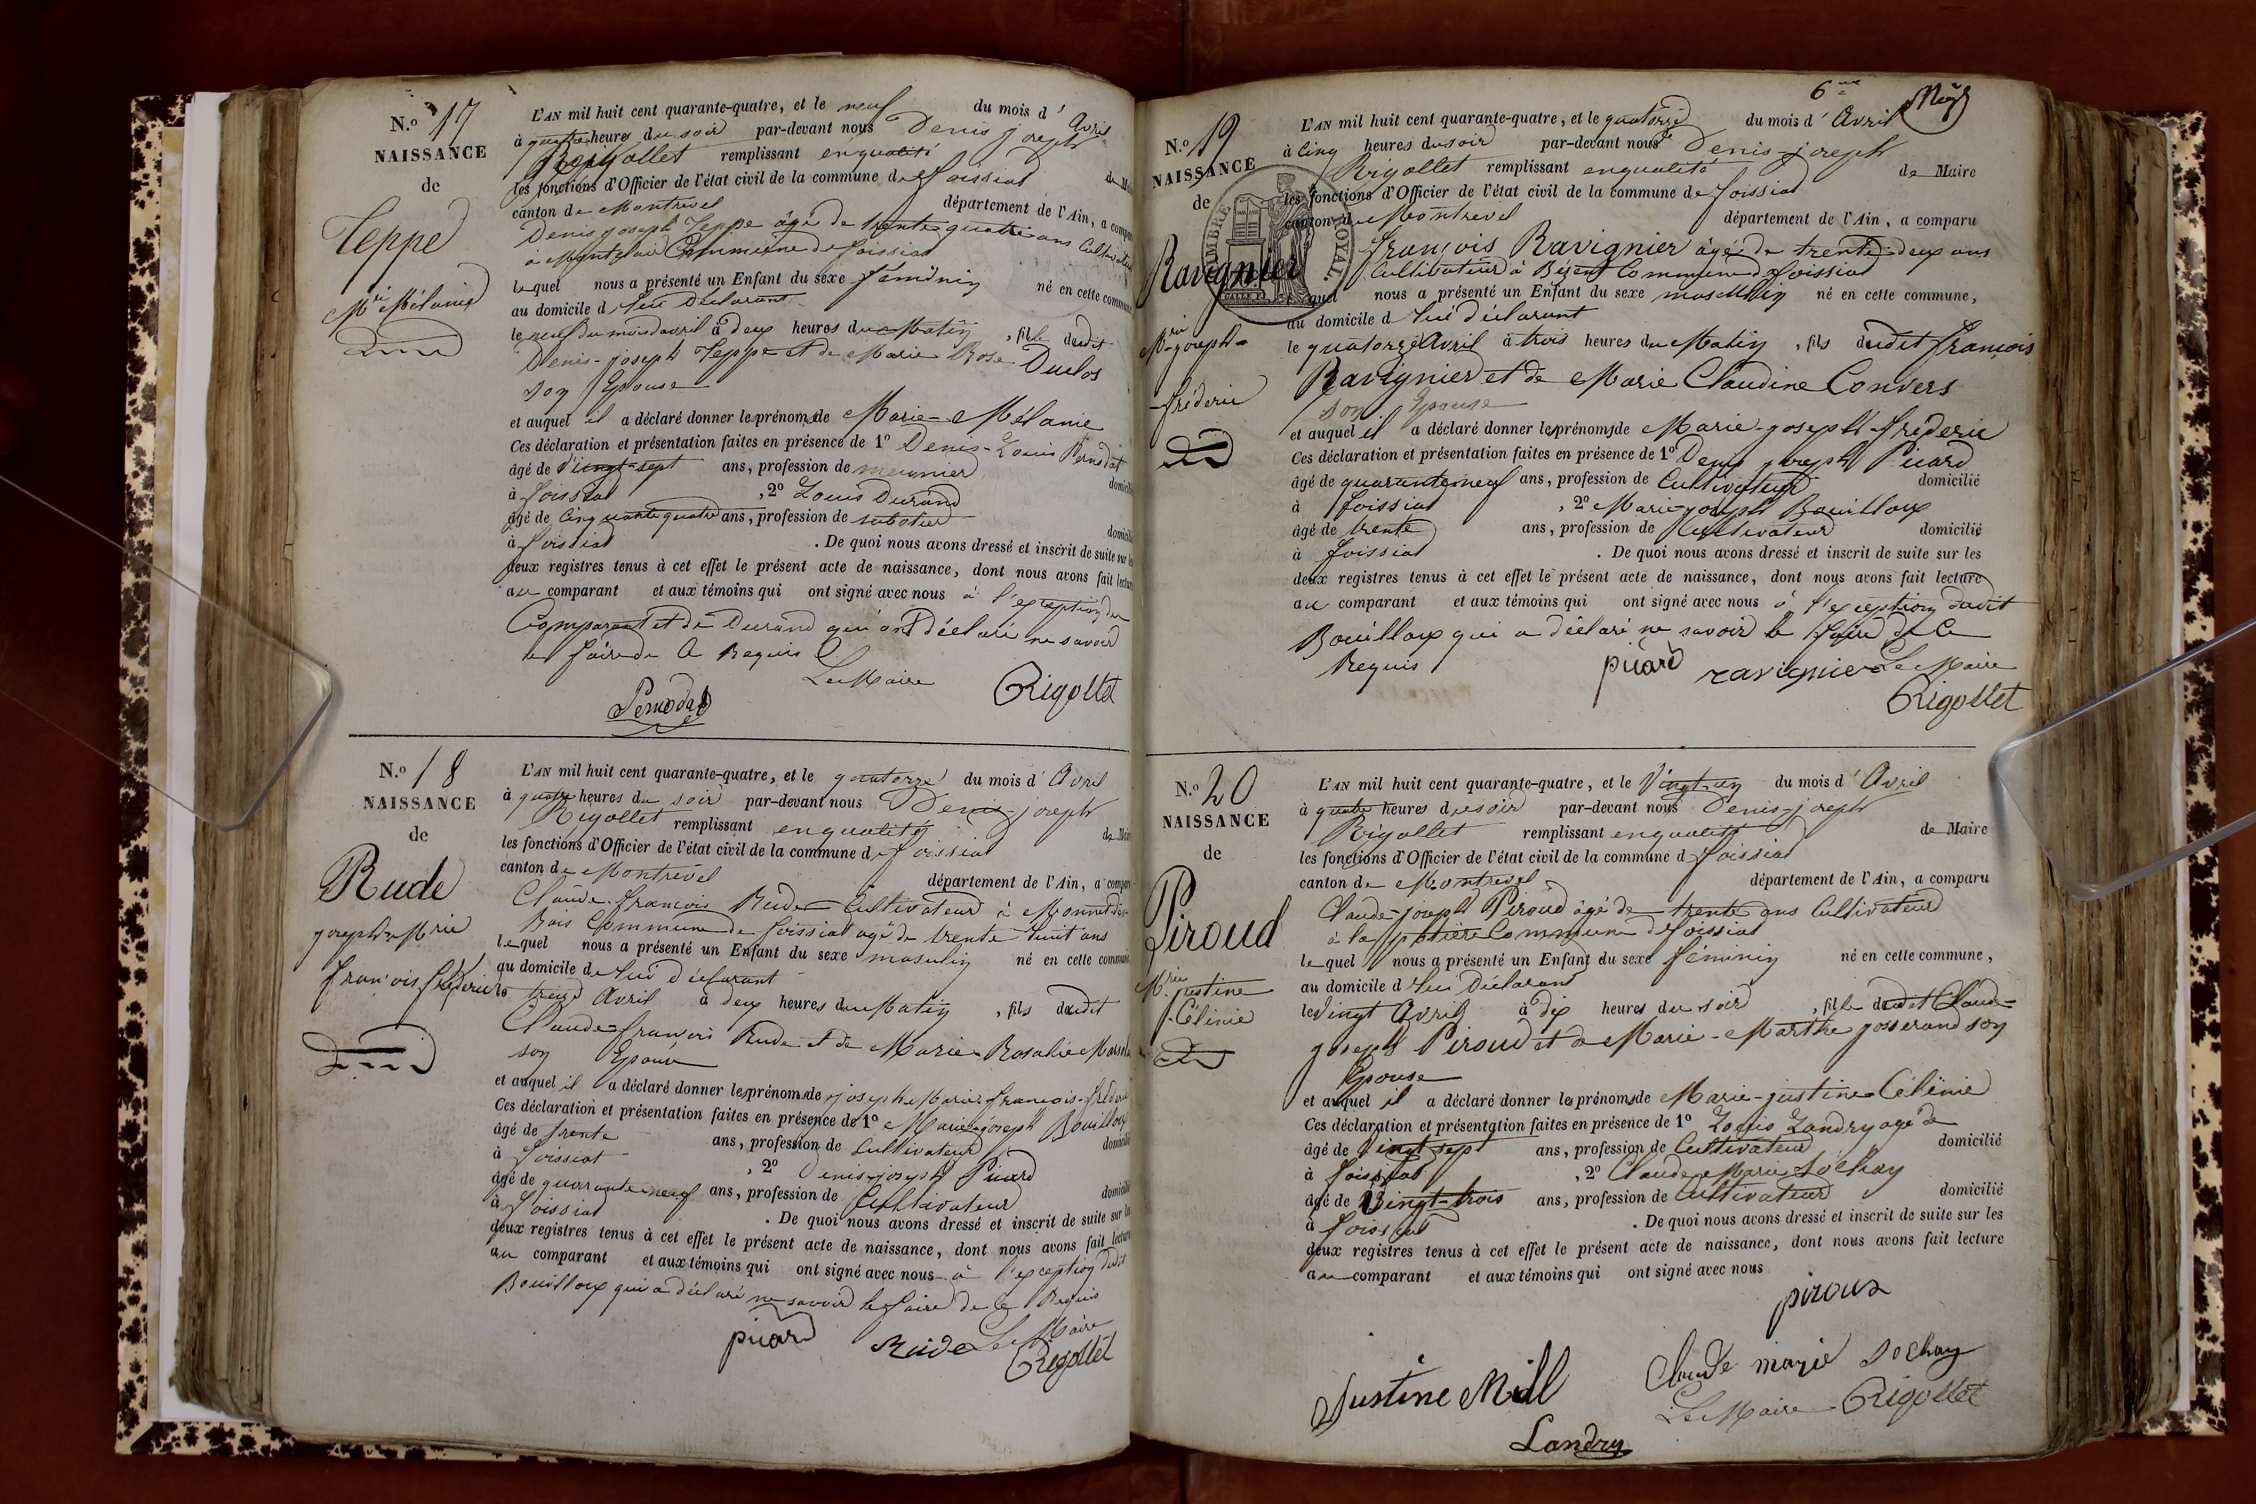 N.o 17
NAISSANCE
de
Teppe
Mie Mélanie
L'AN mil huit cent quarante-quatre, et le neuf du mois d' Avril
à quatre heures du soir par-devant nous Denis joseph
Rigollet remplissant en qualité de Mai
les fonctions d'Officier de l'état civil de la commune de foissiat
canton de Montrevel département de l'Ain, a compa
Denis joseph Teppe âgé de trente quatre ans Cultivateur
à Commune de foissiat
lequel nous a présenté un Enfant du sexe féminin né en cette commune
au domicile de lui Déclarant
le neuf du mois d'avril à deux heures du Matin, fille dudit
Denis-joseph Teppe et de Marie Rose Duclos
son Epouse
et auquel il a déclaré donner les prénoms de Marie-Mélanie
Ces déclaration et présentation faites en présence de 1o Denis-Louis Pernodat
âgé de vingt-sept ans, profession de meunier domicilié
à foissiat, 2o Louis Durand
âgé de Cinquante quatre ans, profession de sabotier domicilié
à foissiat. De quoi nous avons dressé et inscrit de suite sur les
deux registres tenus à cet effet le présent acte de naissance, dont nous avons fait lecture
au comparant et aux témoins qui ont signé avec nous à l'exception du
Comparant et de Durand qui ont déclaré ne savoir
le faire de ce Requis
Le Maire
Pernodat Rigollet
N.o 18
NAISSANCE
de
Rude
joseph Marie
françois fréderic
L'AN mil huit cent quarante-quatre, et le quatorze du mois d' Avril
à quatre heures du soir par-devant nous Denis-joseph
Rigollet remplissant en qualité de Mai
les fonctions d'Officier de l'état civil de la commune de foissiat
canton de Montrevel département de l'Ain, a compar
Claude-françois Rude Cultivateur à
Bois Commune de foissiat agé de trente huit ans
lequel nous a présenté un Enfant du sexe masculin né en cette commune
au domicile de lui Déclarant
le treize Avril à deux heures du Matin, fils dudit
Claude-françois Rude et de Marie-Rosalie
son Epouse
et auquel il a déclaré donner les prénoms de joseph Marie françois-fréderic
Ces déclaration et présentation faites en présence de 1o Marie-joseph Bouilloux
âgé de trente ans, profession de Cultivateur domicilié
à foissiat, 2o Denis-joseph Picard
âgé de quarante-neuf ans, profession de Cultivateur domicilié
à foissiat. De quoi nous avons dressé et inscrit de suite sur les
deux registres tenus à cet effet le présent acte de naissance, dont nous avons fait lecture
au comparant et aux témoins qui ont signé avec nous à l'exception dudit
Bouilloux qui a déclaré ne savoir le faire de ce Requis
Le Maire
picard Rude Rigollet
6me
N.o 19
NAISSANCE
de
Ravignier
Mie-joseph-
fréderic
TIMBRE ROYAL
L'AN mil huit cent quarante-quatre, et le quatorze du mois d' Avril
à Cinq heures du soir par-devant nous Denis-joseph
Rigollet remplissant en qualité de Maire
les fonctions d'Officier de l'état civil de la commune de foissiat
canton de Montrevel département de l'Ain, a comparu
françois Ravignier âgé de trente-deux ans
Cultivateur à Commune de foissiat
lequel nous a présenté un Enfant du sexe masculin né en cette commune,
au domicile de lui déclarant
le quatorze Avril à trois heures du Matin, fils dudit françois
Ravignier et de Marie Claudine Convers
son Epouse
et auquel il a déclaré donner les prénoms de Marie-joseph-fréderic
Ces déclaration et présentation faites en présence de 1o Denis joseph Picard
âgé de quarante neuf ans, profession de Cultivateur domicilié
à foissiat, 2o Marie-joseph Bouilloux
âgé de trente ans, profession de Cultivateur domicilié
à foissiat. De quoi nous avons dressé et inscrit de suite sur les
deux registres tenus à cet effet le présent acte de naissance, dont nous avons fait lecture
au comparant et aux témoins qui ont signé avec nous à l'exception dudit
Bouilloux qui a déclaré ne savoir le faire de ce
Requis picard ravignier Le Maire
Rigollet
N.o 20
NAISSANCE
de
Piroud
Mie justine
Célinie
L'AN mil huit cent quarante-quatre, et le Vingt-un du mois d' Avril
à quatre heures du soir par-devant nous Denis-joseph
Rigollet remplissant en qualité de Maire
les fonctions d'Officier de l'état civil de la commune de foissiat
canton de Montrevel département de l'Ain, a comparu
Claude-joseph Piroud âgé de trente ans Cultivateur
à la Commune de foissiat
lequel nous a présenté un Enfant du sexe féminin né en cette commune,
au domicile de lui Déclarant
le Vingt Avril à dix heures du soir, fille dudit Claude-
joseph Piroud et de Marie-Marthe josserand son
Epouse
et auquel il a déclaré donner les prénoms de Marie-justine Célinie
Ces déclaration et présentation faites en présence de 1o Louis Landry agé de
âgé de Vingt sept ans, profession de Cultivateur domicilié
à foissiat, 2o Claude Marie Sochay
âgé de Vingt-trois ans, profession de Cultivateur domicilié
à foissiat. De quoi nous avons dressé et inscrit de suite sur les
deux registres tenus à cet effet le présent acte de naissance, dont nous avons fait lecture
au comparant et aux témoins qui ont signé avec nous
piroux
Claude marie sochay
Justine Mill Le Maire Rigollet
Landry